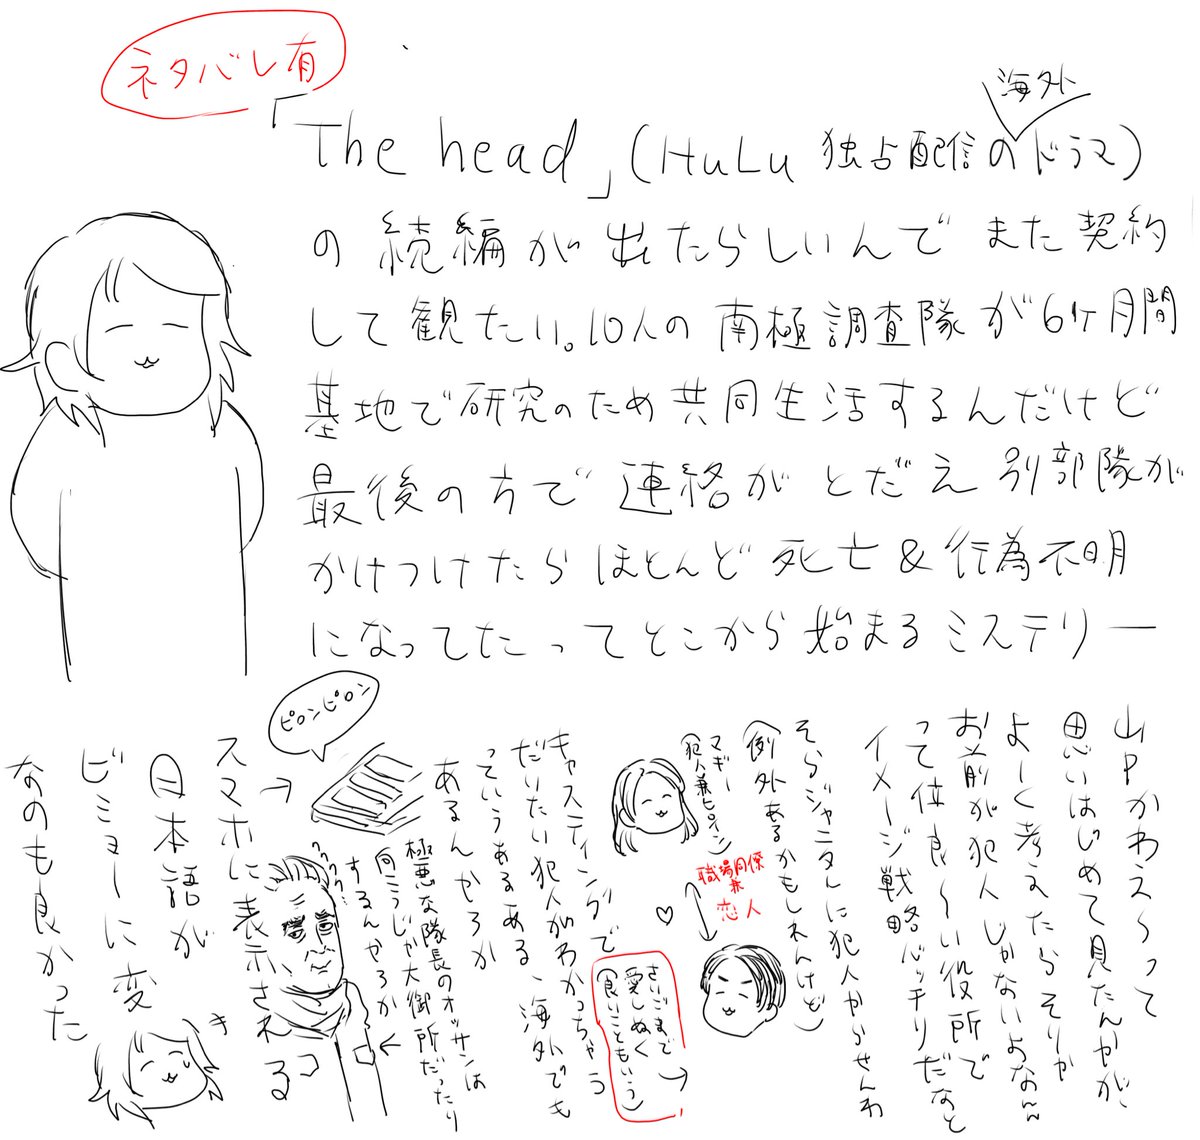 ネタバレ有
「The head」(HuLu 独占配信の海外ドラマ)
の続編が出たらしいんでまた契約
して観たい。10人の南極調査隊が6ヶ月間
基地で研究のため共同生活するんだけど
最後の方で連絡がとだえ別部隊が
かけつけたらほとんど死亡&行為不明
になってたってとこから始まるミステリー
山Pかわえ〜って
思いはじめて見たんやが、
よーく考えたらそりゃ
お前が犯人じゃないよなんw
って位良〜い役所で
イメージ戦略バッチリだなと
そらジャニタレに犯人やらせんわ
(例外あるかもしれんけど)
マギー
(犯人兼ヒロイン)
職場同僚
兼
恋人
さいごまで
愛しぬく
(食いこともいう)
キャスティングで
だいたい犯人がわかっちゃう
っていうあるある、海外でも
あるんやろか
極悪な隊長のオッサンは
向こうじゃ大御所だったり
するんやろか
ピロンピロン
スマホに表示される
日本語が
ビミョーに変
なのも良かった